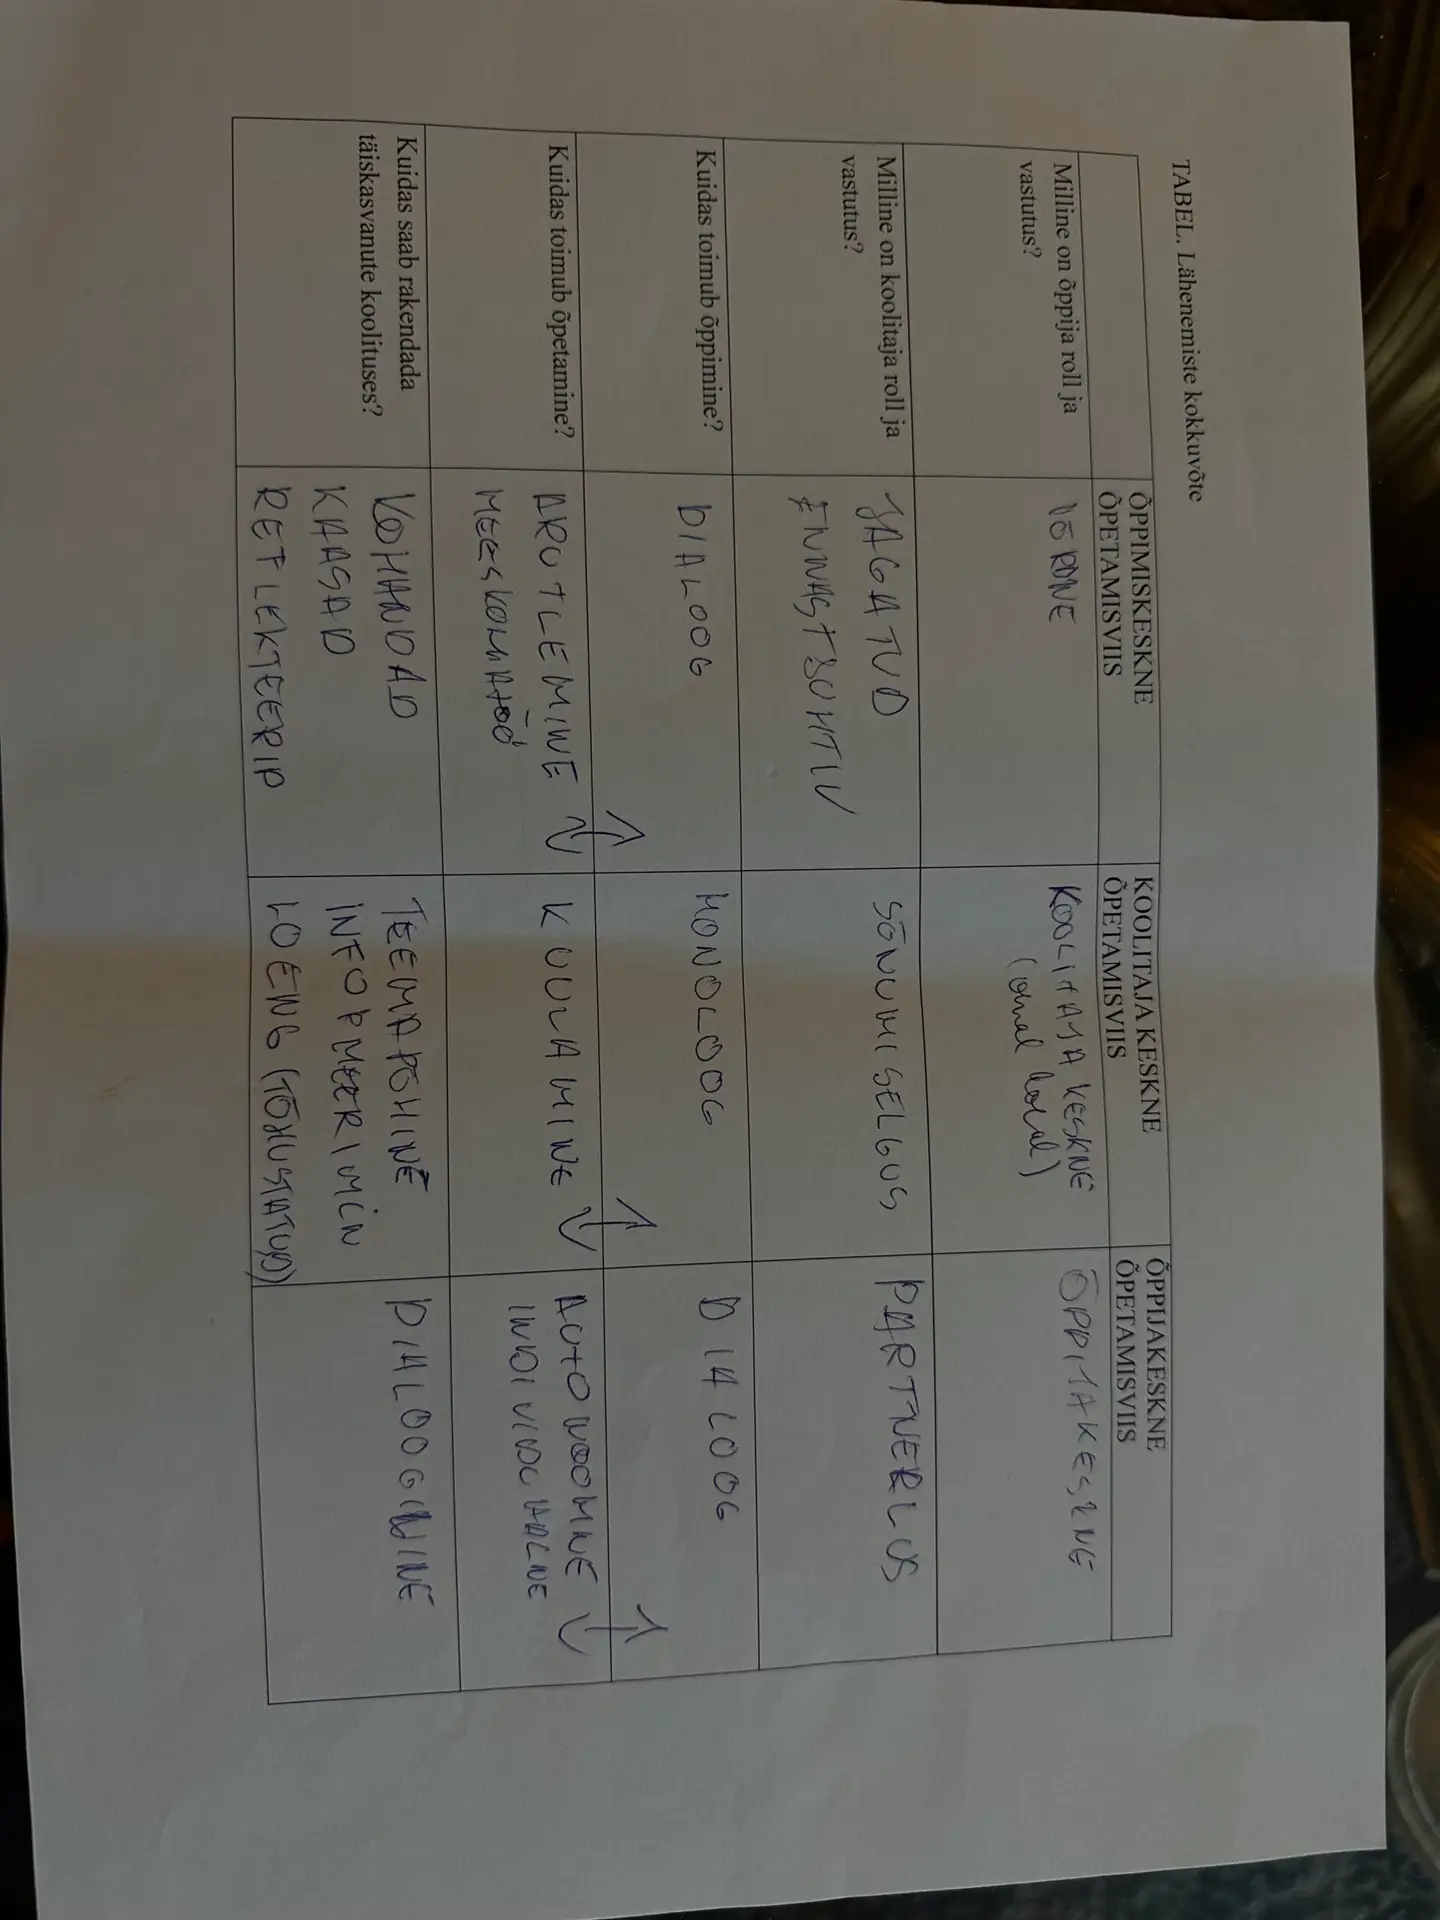 TABEL. Lähenemiste kokkuvõte
ÕPPIMISKESKNE
ÕPETAMISVIIS
KOOLITAJA KESKNE
ÕPETAMISVIIS
ÕPPIJAKESKNE
ÕPETAMISVIIS
Milline on õppija roll ja
vastutus?
VÕRDNE
KOOLITAJA KESKNE
(omal)
ÕPPIJAKESKNE
Milline on koolitaja roll ja
vastutus?
JAGATUD
ENNASTJUHTIV
SÕNUMISELGUS
PARTNERLUS
Kuidas toimub õppimine?
DIALOOG
MONOLOOG
DIALOOG
Kuidas toimub õpetamine?
ARUTLEMINE
MEESKONNATÖÖ
KUULAMINE
AUTONOOMNE
INDIVIDUAALNE
Kuidas saab rakendada
täiskasvanute koolituses?
KOHANDAD
KAASAD
REFLEKTEERID
TEEMAPÕHINE
INFORMEERIMIN
LOENG (TÕHUSTATUD)
DIALOOGINE